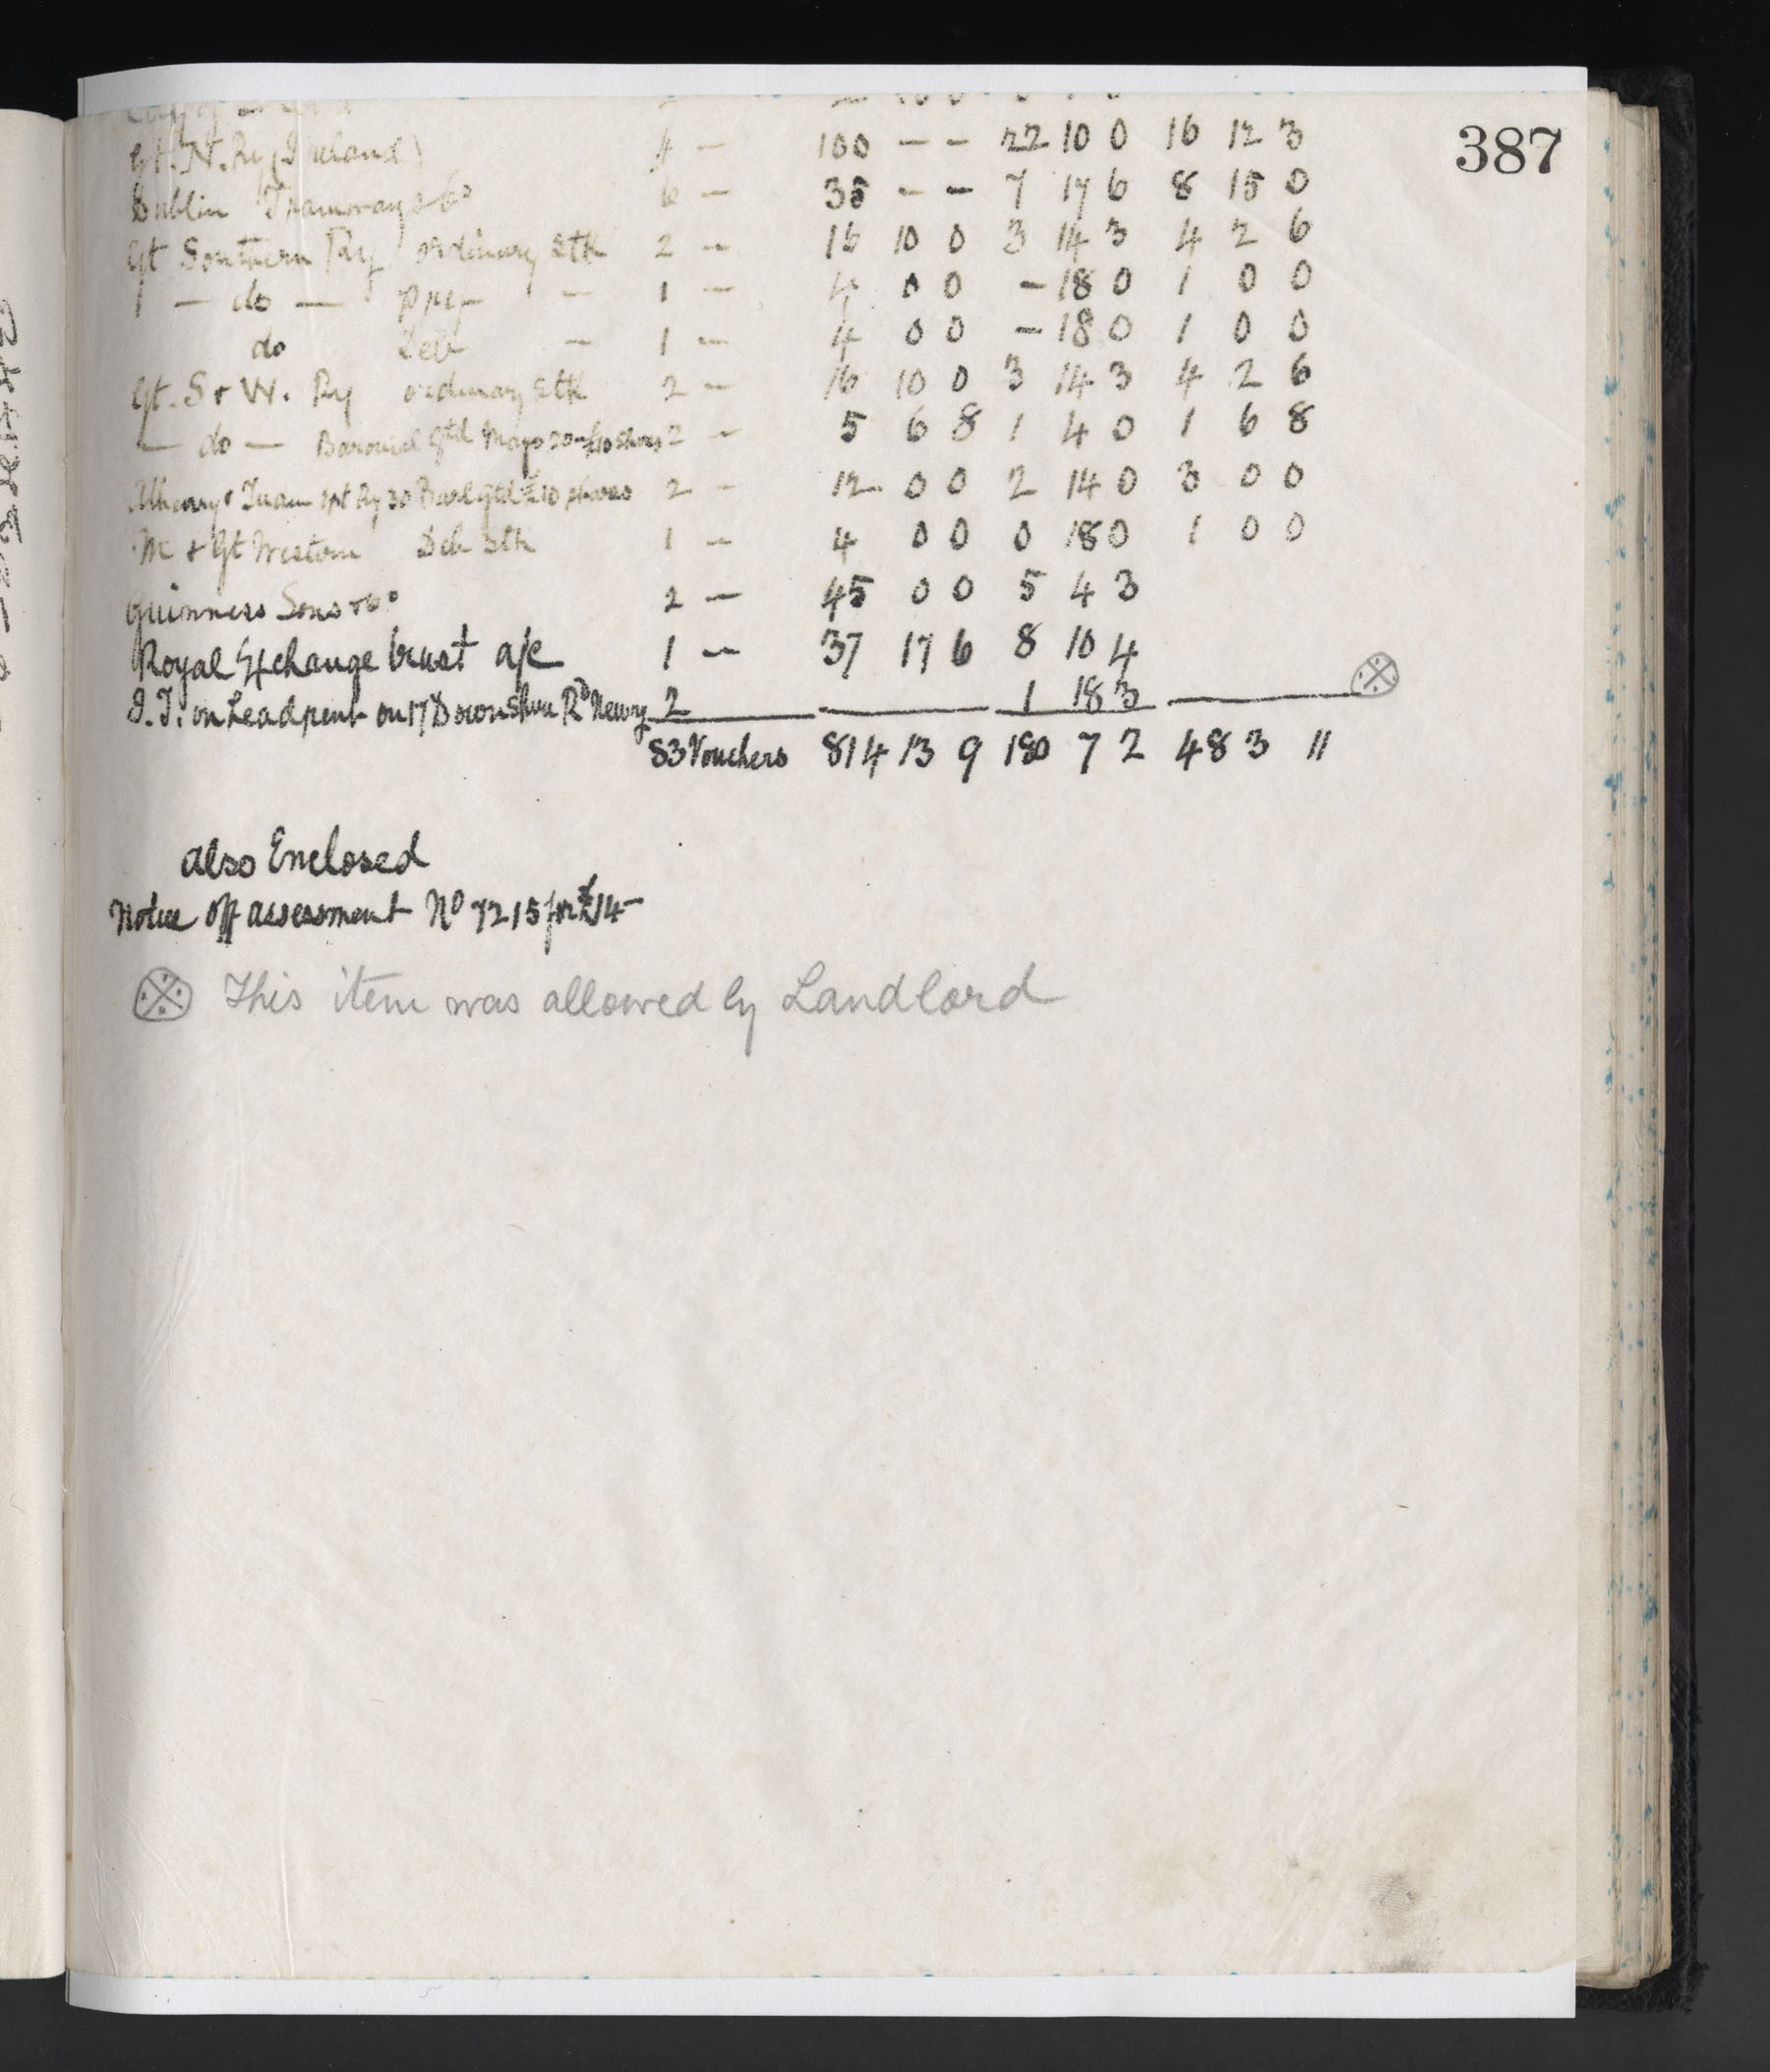 387
Gt. N. Ry (Ireland) 4 — 100 — — 22 10 0 16 12 3
Dublin Tramways Co 6 — 35 — — 7 17 6 8 15 0
Gt Southern Ry ordinary Stk 2 — 16 10 0 3 14 3 4 2 6
— do — pref — 1 — 4 0 0 — 18 0 1 0 0
do Deb — 1 — 4 0 0 — 18 0 1 0 0
Gt. S & W. Ry ordinary Stk 2 — 16 10 0 3 14 3 4 2 6
— do — Baronial Gtd Mayo 20 £10 shares 2 — 5 6 8 1 4 0 1 6 8
Tuam Ry 30 Gtd £10 shares 2 — 12 0 0 2 14 0 3 0 0
M & Gt Western Deb Stk 1 — 4 0 0 0 18 0 1 0 0
Guinness Sons & Co 2 — 45 0 0 5 4 3
Royal Exchange trust a/c 1 — 37 17 6 8 10 4
I. T. on Lead rent on 17 Downshire Rd Newry 2 1 18 3
83 Vouchers 814 13 9 180 7 2 48 3 11
Also Enclosed
Notice off assessment No 7215 for £14—
This item was allowed by Landlord